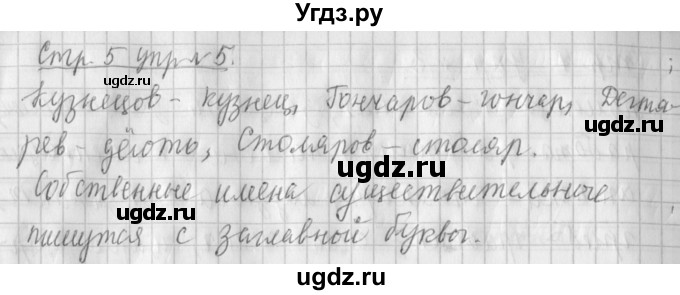 Угдз.ру
Стр. 5 упр №5.
ugdz.ru
ugdz.ru
Кузнецов - кузнец, Гончаров - гончар, Дегтя-
ugdz.ru
рев - дёготь, Столяров - столяр.
ugdz.ru
Собственные имена существительные
ugdz.ru
пишутся с заглавной буквы.
ugdz.ru